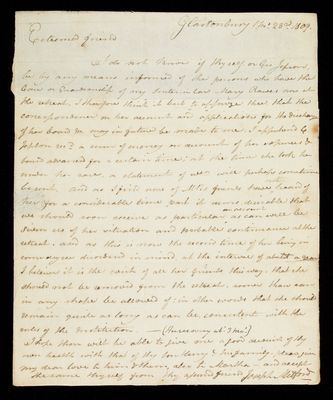 Glastonbury 23rd 1809.
Esteemed friend
I do not know if thyself or Geo Jepson,
be by any means informed of the persons who have the
Care or Guardianship of my Sister in law Mary Reeves now at
the retreat, I therefore think it best to apprize thee that the
correspondence on her account and applications for the discharge
of her board &c may in future be made to me. I
Jepson a sum of money on account of her expences &
board advanced for a certain time; at the time she took he
under her care, a statement of will perhaps sometime
be sent, and as I find none of M's friends have heard of
her for a considerable time past it is more desirable that
we should soon receive as particular an account as can well be
given us of her situation and probable continuance at the
retreat; and as this is now the second time of her being in
disordered in mind at the interval of about a year
I believe it is the wish of all her friends this way, that she
should not be removed from the retreat, sooner than can
in any shape be allowed of; in other words that she should
remain quite as long as can be consistent with the
rules of the Institution. —
I hope thou wilt be able to give me a good account of thy
own health with that of thy Son Henry & family, please give
my dear love to him & them, also to Martha — and accept
the same thyself from thy assured friend Joseph